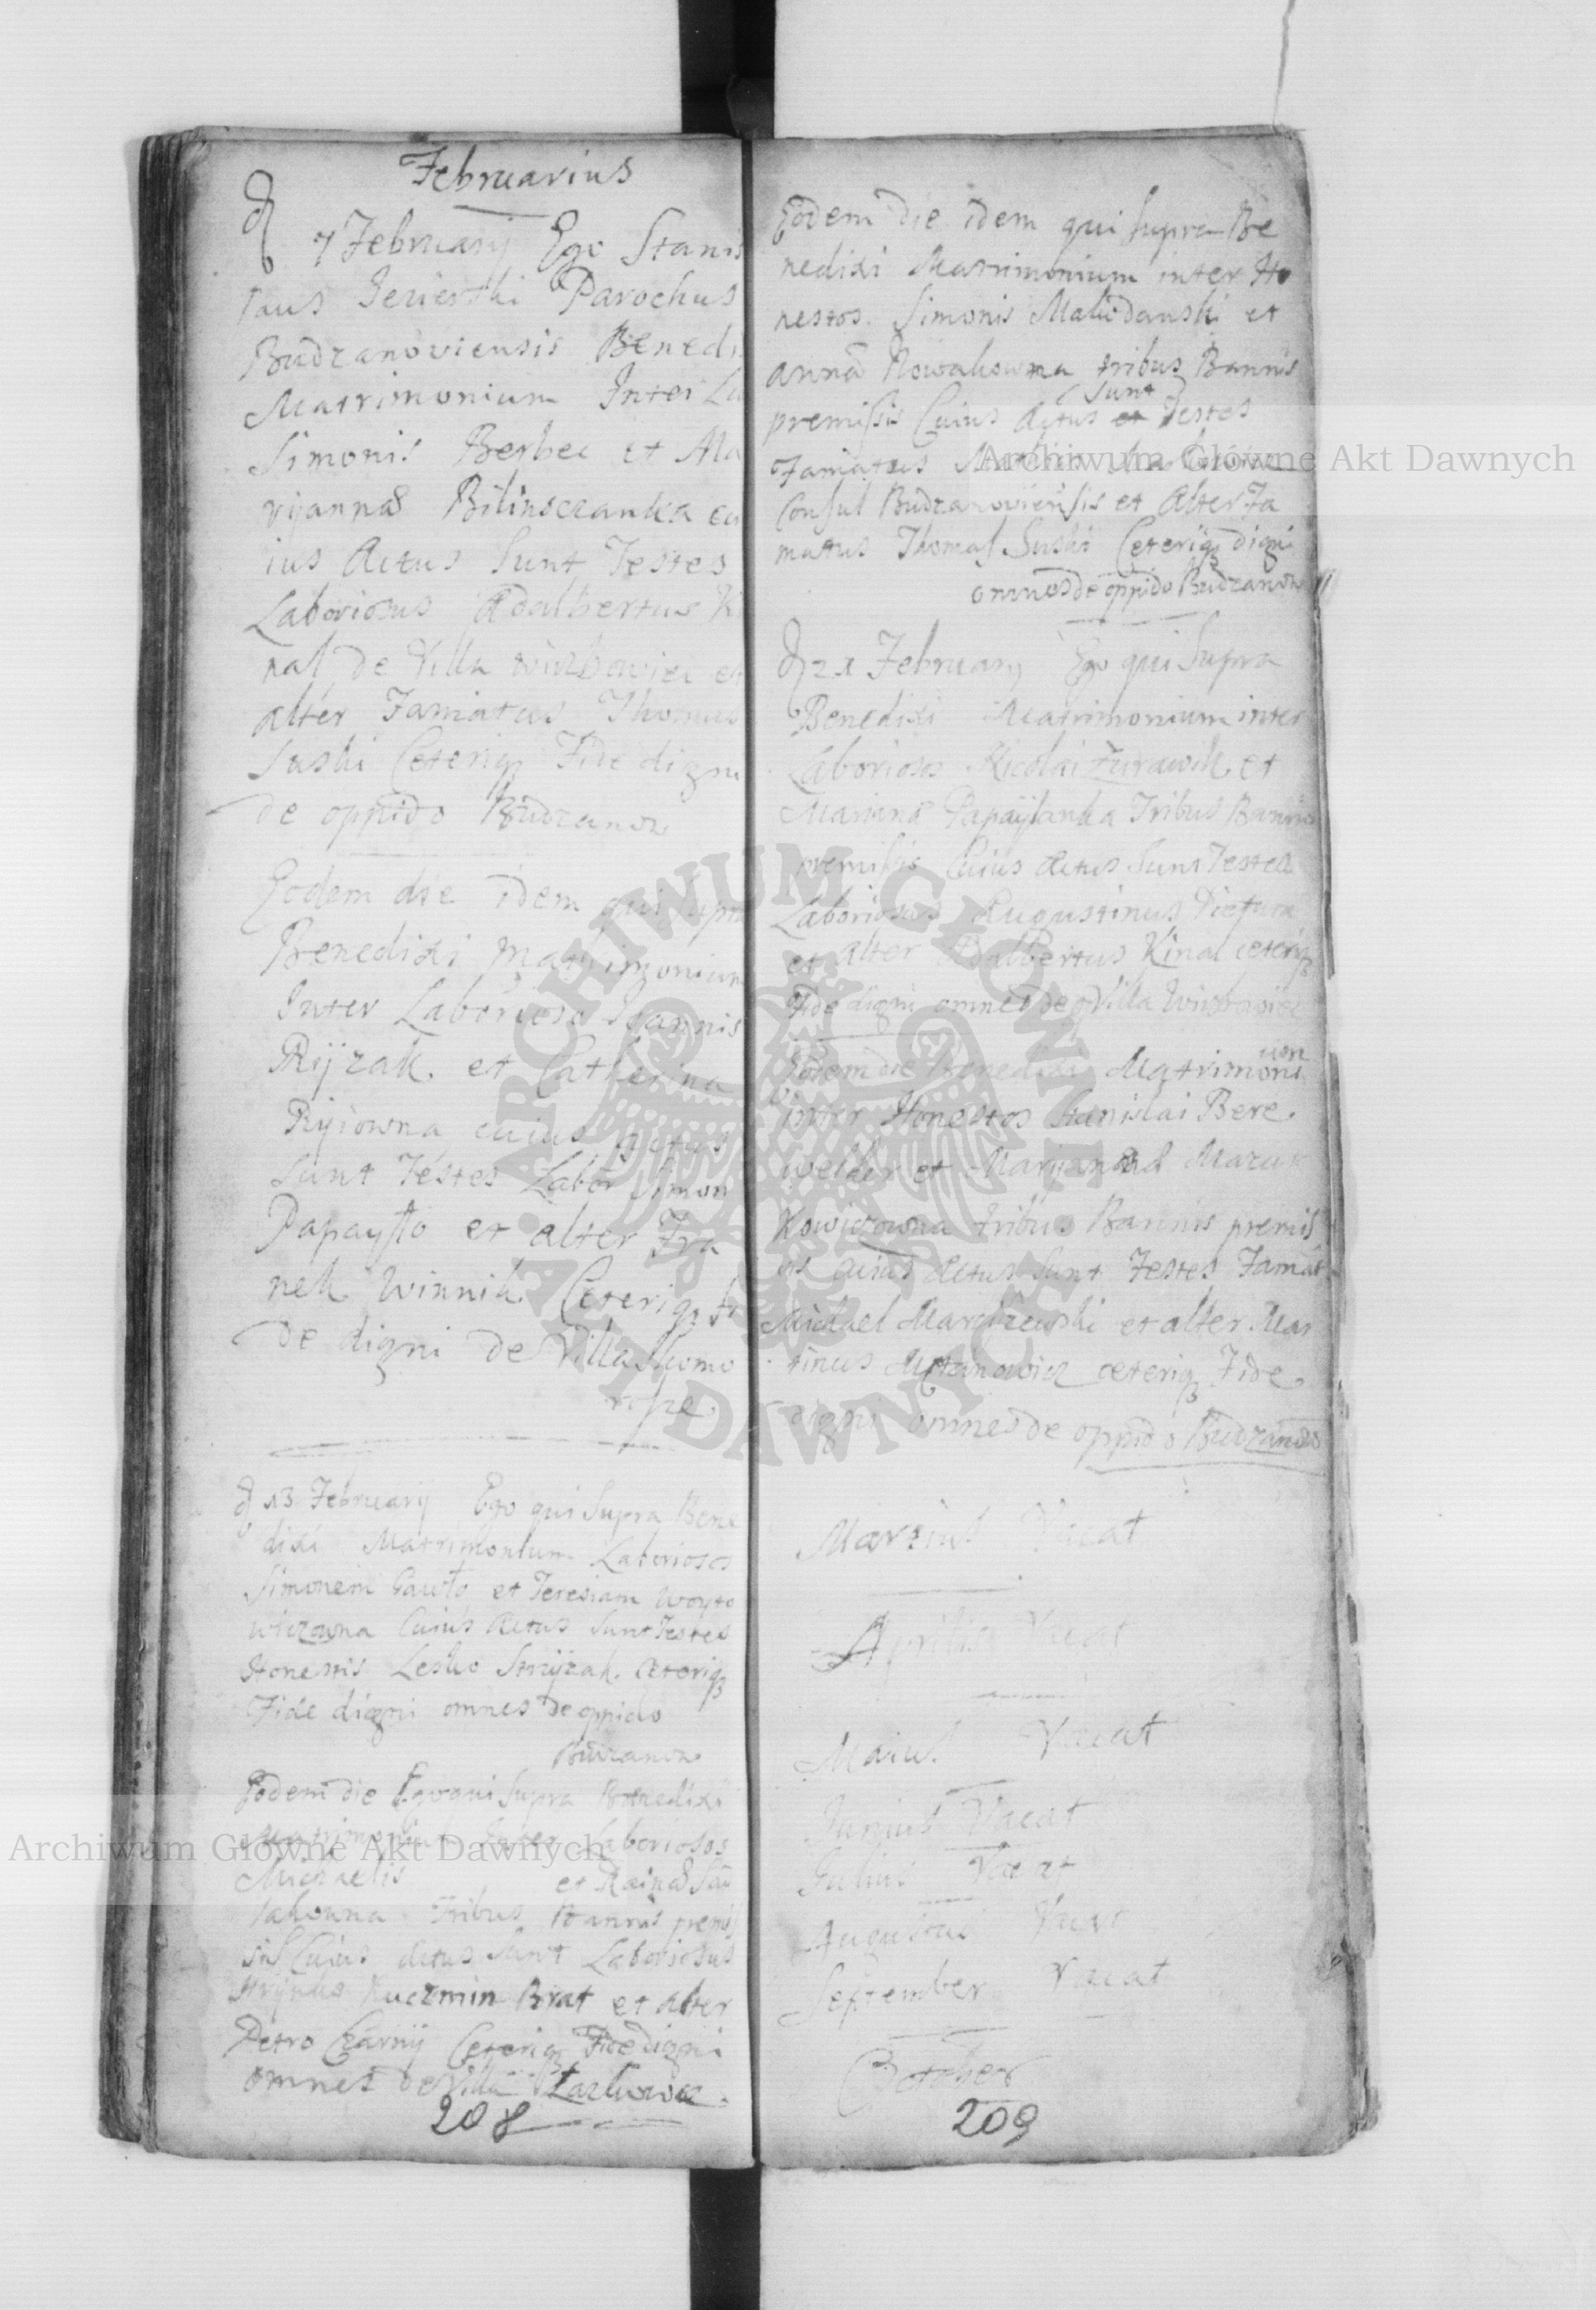 Februarius
7 February Ego Stanis
laus Jezierski Parochus
Budzanoviensis Benedi
Matrimonium Inter La
Simonis Berbec et Ma
ryanna Bilinsczanka cu
ius Actus Sunt Testes
Laboriosus Adalbertus Ki
nal de Villa et
alter Famatus Thomas
Suski Ceteriq Fide digni
de oppido Budzanow
Eodem die idem qui supra
Benedixi Matrimonium
Inter Labórioso Joannis
Ryzak. et Catherina
Ryiowna cuius actus
Sunt Testes Labor Simon
Papayllo et alter Fra
nek Winnik Ceteriq fi
de digni de Villa Skomo
rosze.
13 February Ego qui Supra Bene
dixi Matrimonium Laboriosos
Simonem et Teresiam Woyto
wiczowna Cuius Actus Sunt Testes
Honestis Lesko Strzyzak. Ceteriq
Fide digni omnes de oppido
Budzanow
Eodem die Ego qui Supra Benedixi
Matrimonium Inter Laboriosos
Michaelis et
Tribus Bannis premis
sis Cuius Actus Sunt Laboriosus
Hrynko Kuczmin Brat et Alter
Petro Czarny Ceteriq Fide digni
omnes de Villa
208
Eodem die idem qui supra Be
nedixi Matrimonium inter Ho
nestos. Simonis et
anna Nowakowna tribus Bannis
Sunt
premissis Cuius Actus et Testes
Famatus
Consul Budzanoviensis et Alter Fa
matus Thomas Suski Ceteriq digni
omnes de oppido Budzanow
21 February Ego qui Supra
Benedixi Matrimonium inter
Laboriosos Nicolai Zurawik et
Marianna Papaylanka Tribus Bannis
premissis Cuius Actus Sunt Testes
Laboriosus Augustinus
et alter Adalbertus Kinal ceteriq
Fide digni omnes de Villa
Eodem die Benedixi Matrimoni
um
inter Honestos Stanislai Bere
welder et Maryanna Mazur
kowiczowna tribus Bannis premis
sis cuius Actus Sunt Testes Famat
Michael Marcizewski et alter Mar
tinus ceteriq Fide
digni omnes de oppido Budzanow
Martius Vacat
Aprilis Vacat
Maius Vacat
Junius Vacat
Julius Vacat
Augustus Vacat
September Vacat
October
209
Archiwum Główne Akt Dawnych
Archiwum Główne Akt Dawnych
ARCHIWUM GŁÓWNE
AKT DAWNYCH